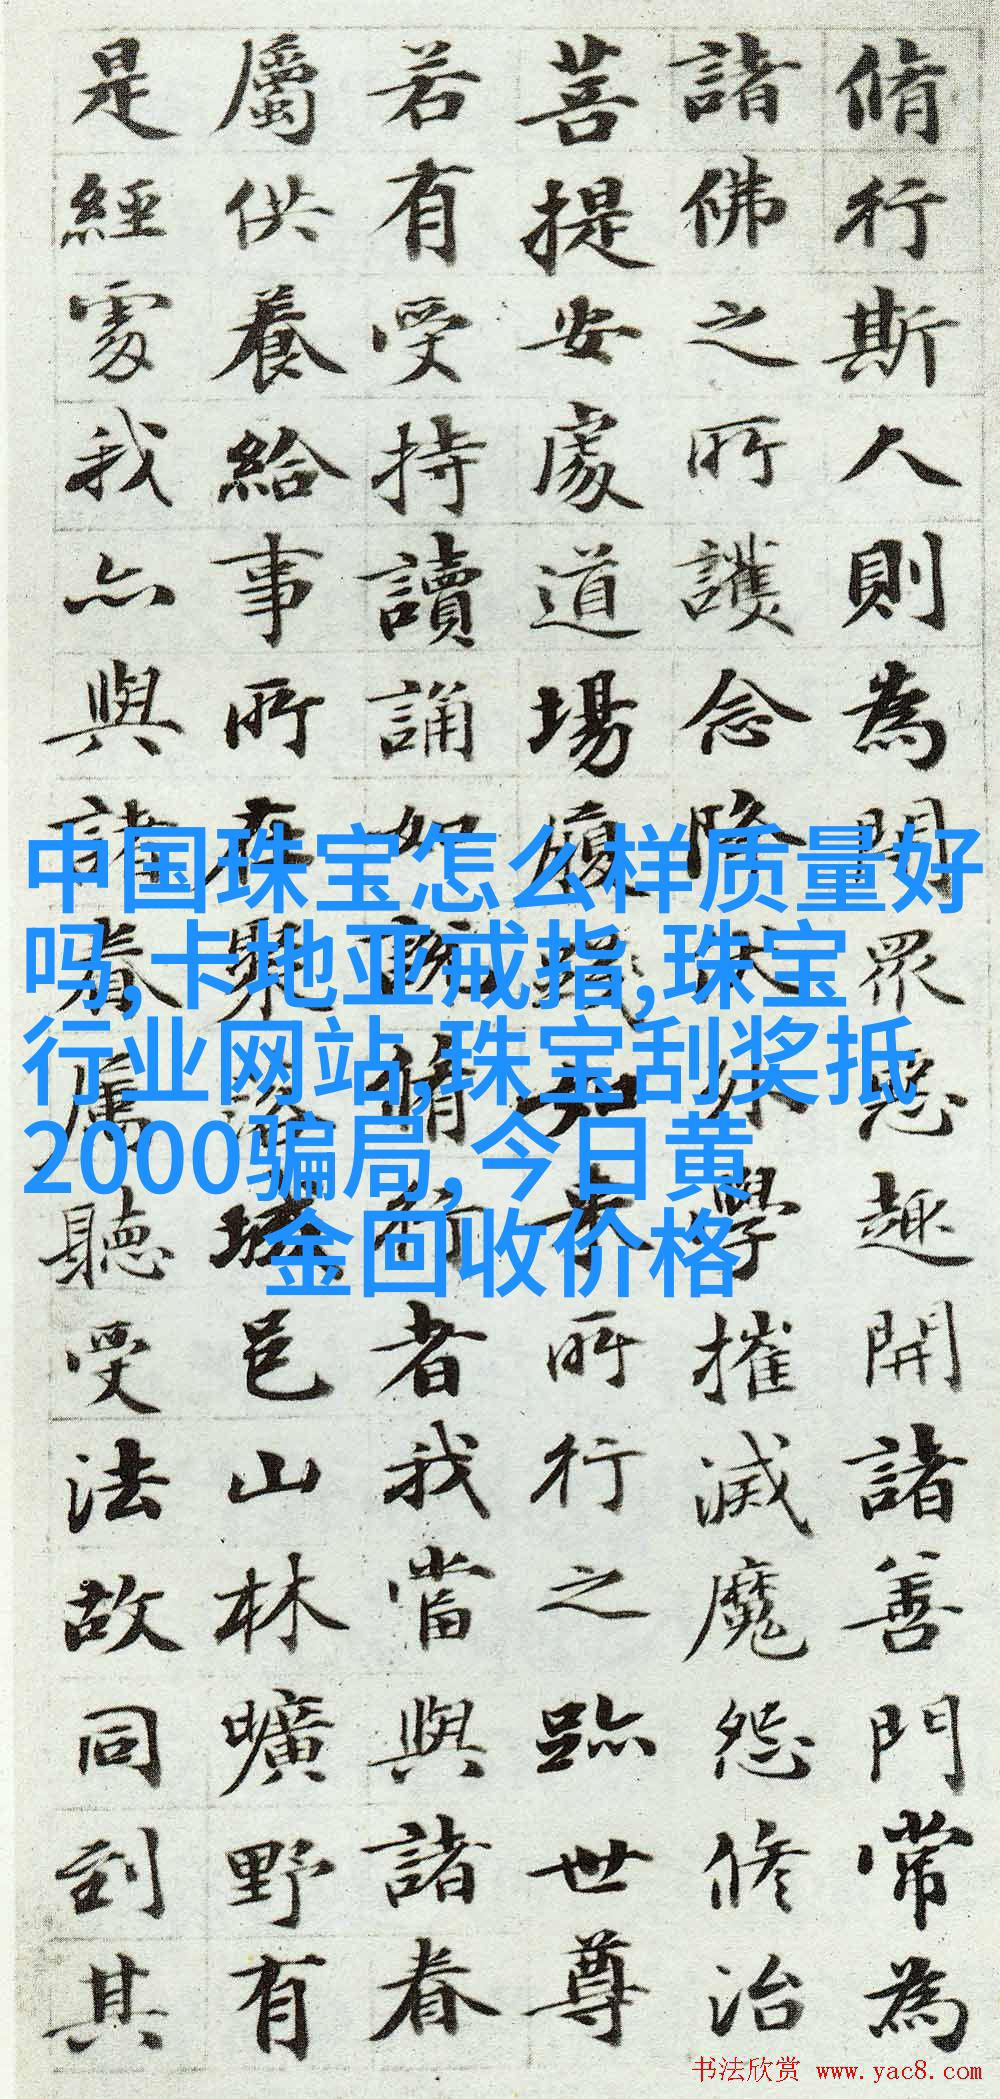 脩行斯人則為閉眾惡趣開諸善門常為
諸佛之所護念降伏外學摧滅魔怨修治
菩提安處道場履踐如來所行之跡世尊
若有受持讀誦如說脩行者我當與諸眷
屬供養給事所在聚落城邑山林曠野有
是經處我亦與諸眷屬聽受法故同到其
中国珠宝怎么样质量好
吗,卡地亚戒指,珠宝
行业网站,珠宝刮奖抵
2000骗局,今日黄
金回收价格
书法欣赏 www.yac8.com